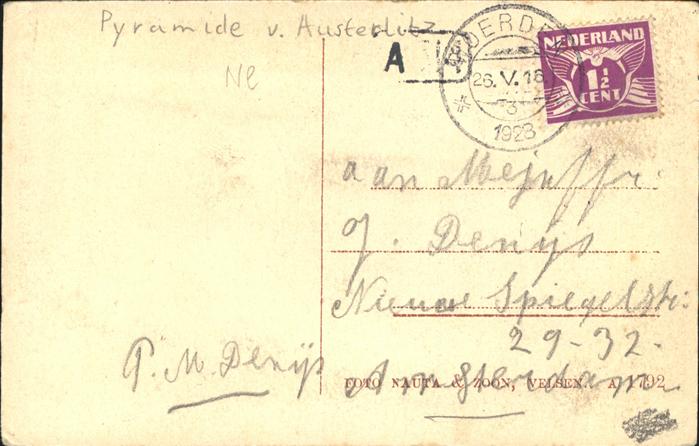 Pyramide v. Austerlitz
Ne
A
26.V.18
3
1928
NEDERLAND
1½
CENT
aan Mejuffr.
J. Denijs
Nieuwe Spiegelstr:
29-32.
Amsterdam
P. M. Denijs
FOTO NAUTA & ZOON, VELSEN. A 1792